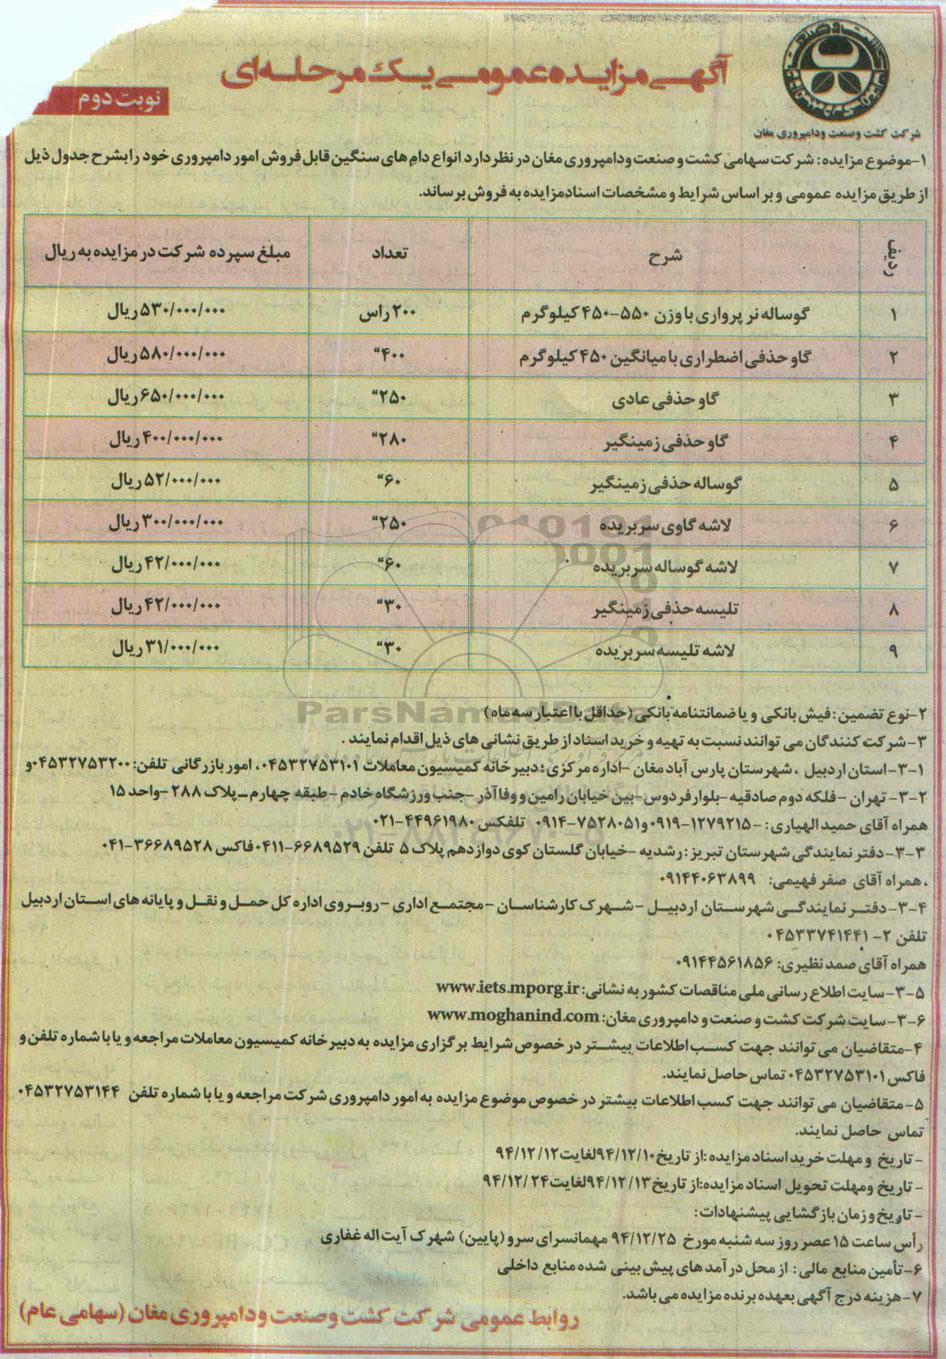 آگهی مزایده عمومی یک مرحله‌ای
نوبت دوم
شرکت کشت و صنعت و دامپروری مغان
۱-موضوع مزایده: شرکت سهامی کشت و صنعت ودامپروری مغان در نظر دارد انواع دام های سنگین قابل فروش امور دامپروری خود را بشرح جدول ذیل
از طریق مزایده عمومی و بر اساس شرایط و مشخصات اسناد مزایده به فروش برساند.
ردیف شرح تعداد مبلغ سپرده شرکت در مزایده به ریال
۱ گوساله نر پرواری با وزن ۵۵۰-۴۵۰ کیلوگرم ۲۰۰ راس ۵۳۰/۰۰۰/۰۰۰ ریال
۲ گاو حذفی اضطراری با میانگین ۴۵۰ کیلوگرم ۴۰۰" ۵۸۰/۰۰۰/۰۰۰ ریال
۳ گاو حذفی عادی ۲۵۰" ۶۵۰/۰۰۰/۰۰۰ ریال
۴ گاو حذفی زمینگیر ۲۸۰" ۴۰۰/۰۰۰/۰۰۰ ریال
۵ گوساله حذفی زمینگیر ۶۰" ۵۲/۰۰۰/۰۰۰ ریال
۶ لاشه گاوی سربریده ۲۵۰" ۳۰۰/۰۰۰/۰۰۰ ریال
۷ لاشه گوساله سربریده ۶۰" ۴۲/۰۰۰/۰۰۰ ریال
۸ تلیسه حذفی زمینگیر ۳۰" ۴۲/۰۰۰/۰۰۰ ریال
۹ لاشه تلیسه سربریده ۳۰" ۳۱/۰۰۰/۰۰۰ ریال
ParsNamadData
۲-نوع تضمین: فیش بانکی و یا ضمانتنامه بانکی (حداقل با اعتبار سه ماه)
۳-شرکت کنندگان می توانند نسبت به تهیه و خرید اسناد از طریق نشانی های ذیل اقدام نمایند.
۳-۱-استان اردبیل ، شهرستان پارس آباد مغان -اداره مرکزی؛ دبیرخانه کمیسیون معاملات ۰۴۵۳۲۷۵۳۱۰۱، امور بازرگانی تلفن: ۰۴۵۳۲۷۵۳۲۰۰و
۳-۲- تهران -فلکه دوم صادقیه-بلوار فردوس-بین خیابان رامین و وفاآذر -جنب ورزشگاه خادم -طبقه چهارم -پلاک ۲۸۸ -واحد ۱۵
همراه آقای حمید الهیاری: -۱۲۷۹۲۱۵-۰۹۱۹ و۷۵۲۸۰۵۱-۰۹۱۴ تلفکس ۴۴۹۶۱۹۸۰-۰۲۱
۳-۳-دفتر نمایندگی شهرستان تبریز: رشدیه -خیابان گلستان کوی دوازدهم پلاک ۵ تلفن ۶۶۸۹۵۲۹-۰۴۱۱فاکس ۳۶۶۸۹۵۲۸-۰۴۱
، همراه آقای صفر فهیمی: ۰۹۱۴۴۰۶۳۸۹۹
۳-۴-دفتر نمایندگی شهرستان اردبیل -شهرک کارشناسان -مجتمع اداری -روبروی اداره کل حمل و نقل و پایانه های استان اردبیل
تلفن ۲-۰۴۵۳۳۷۴۱۴۴۱
همراه آقای صمد نظیری: ۰۹۱۴۴۵۶۱۸۵۶
۳-۵-سایت اطلاع رسانی ملی مناقصات کشور به نشانی: www.iets.mporg.ir
۳-۶-سایت شرکت کشت و صنعت و دامپروری مغان: www.moghanind.com
۴-متقاضیان می توانند جهت کسب اطلاعات بیشتر در خصوص شرایط برگزاری مزایده به دبیرخانه کمیسیون معاملات مراجعه و یا با شماره تلفن و
فاکس ۰۴۵۳۲۷۵۳۱۰۱ تماس حاصل نمایند.
۵-متقاضیان می توانند جهت کسب اطلاعات بیشتر در خصوص موضوع مزایده به امور دامپروری شرکت مراجعه و یا با شماره تلفن ۰۴۵۳۲۷۵۳۱۴۴
تماس حاصل نمایند.
- تاریخ و مهلت خرید اسناد مزایده :از تاریخ ۹۴/۱۲/۱۰لغایت ۹۴/۱۲/۱۲
- تاریخ ومهلت تحویل اسناد مزایده:از تاریخ ۹۴/۱۲/۱۳لغایت ۹۴/۱۲/۲۴
- تاریخ و زمان بازگشایی پیشنهادات:
رأس ساعت ۱۵ عصر روز سه شنبه مورخ ۹۴/۱۲/۲۵ مهمانسرای سرو (پایین) شهرک آیت اله غفاری
۶-تأمین منابع مالی: از محل درآمد های پیش بینی شده منابع داخلی
۷-هزینه درج آگهی بعهده برنده مزایده می باشد.
روابط عمومی شرکت کشت و صنعت و دامپروری مغان (سهامی عام)